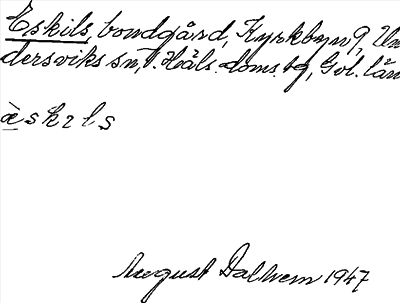 Eskils, bondgård, Kyrkbyn 9, Un
dersviks sn, V. Häls. doms. tg, Gvl. län
August Dalhem 1947